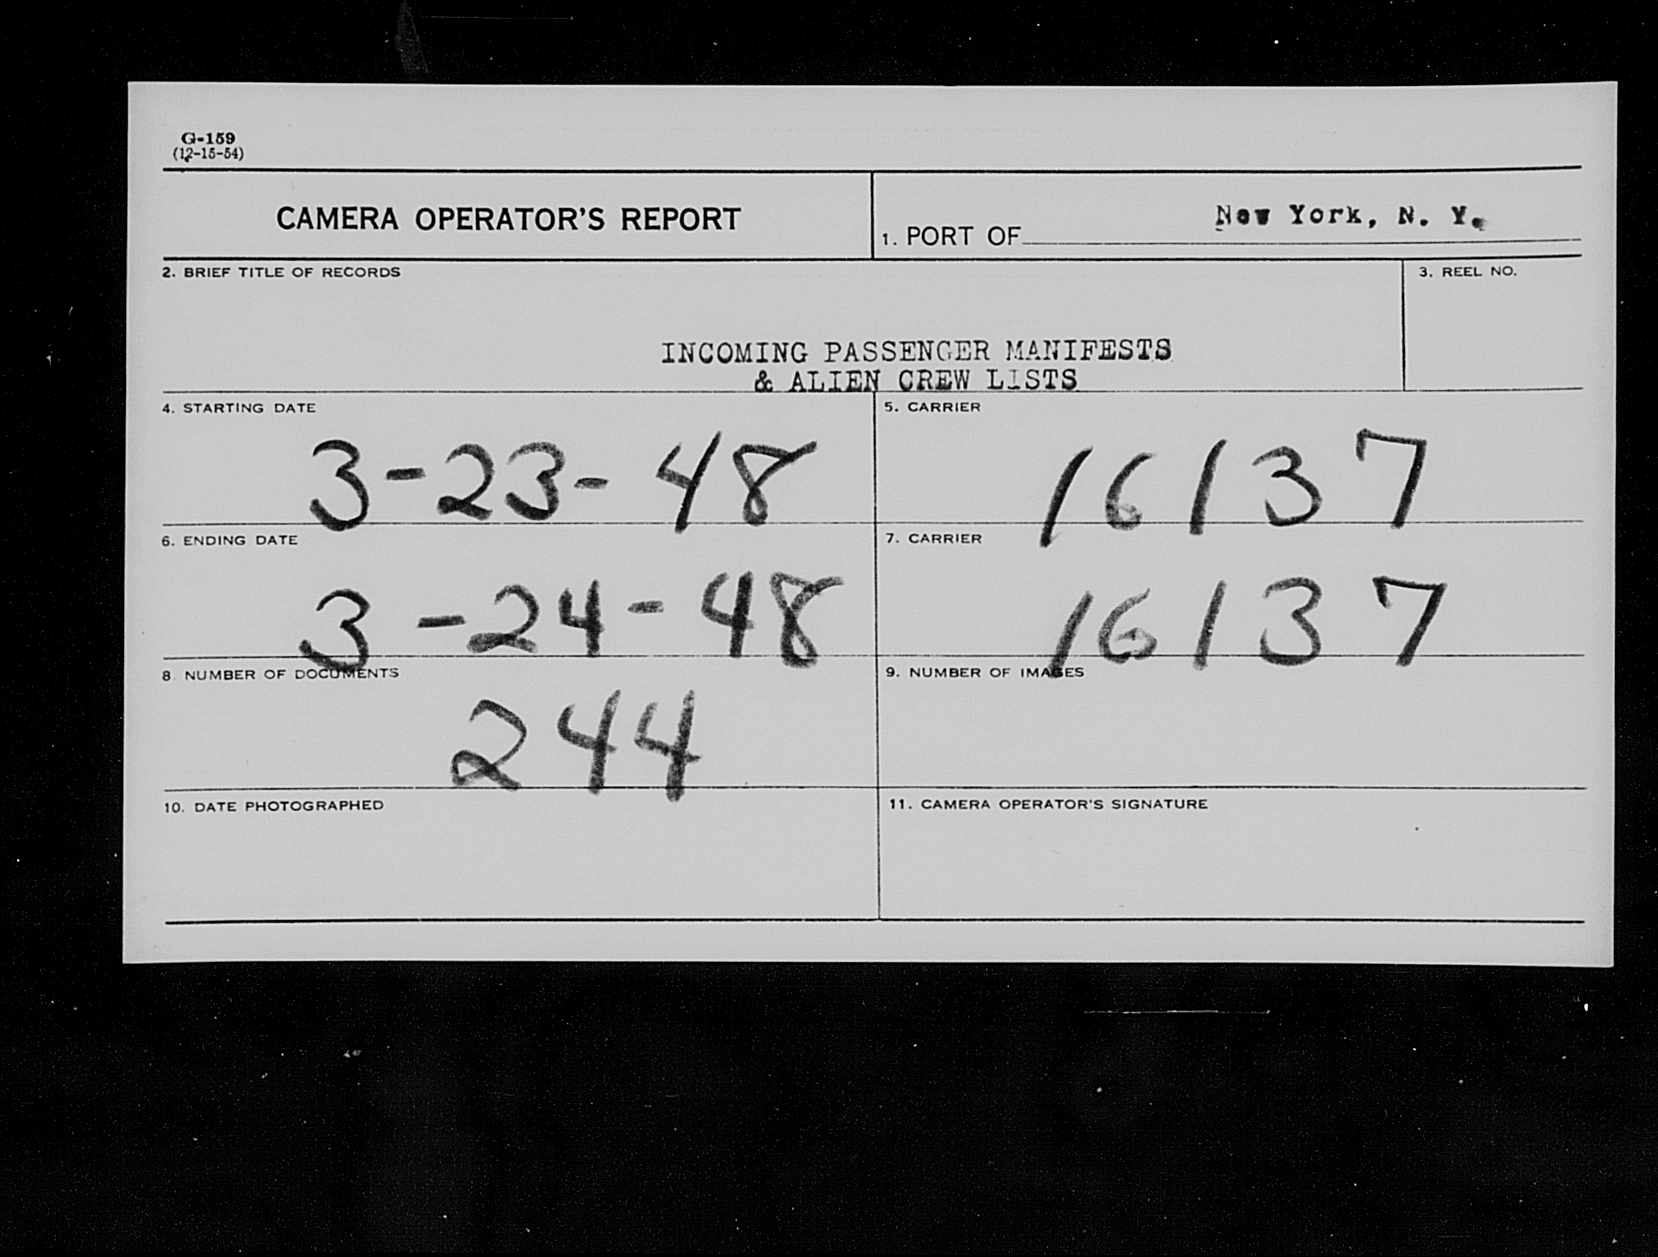 G-159
(12-15-54)
CAMERA OPERATOR'S REPORT
1. PORT OF New York, N. Y.
2. BRIEF TITLE OF RECORDS
3. REEL NO.
INCOMING PASSENGER MANIFESTS
& ALIEN CREW LISTS
4. STARTING DATE
5. CARRIER
3-23-48
16137
6. ENDING DATE
7. CARRIER
3-24-48
16137
8 NUMBER OF DOCUMENTS
9. NUMBER OF IMAGES
244
10. DATE PHOTOGRAPHED
11. CAMERA OPERATOR'S SIGNATURE